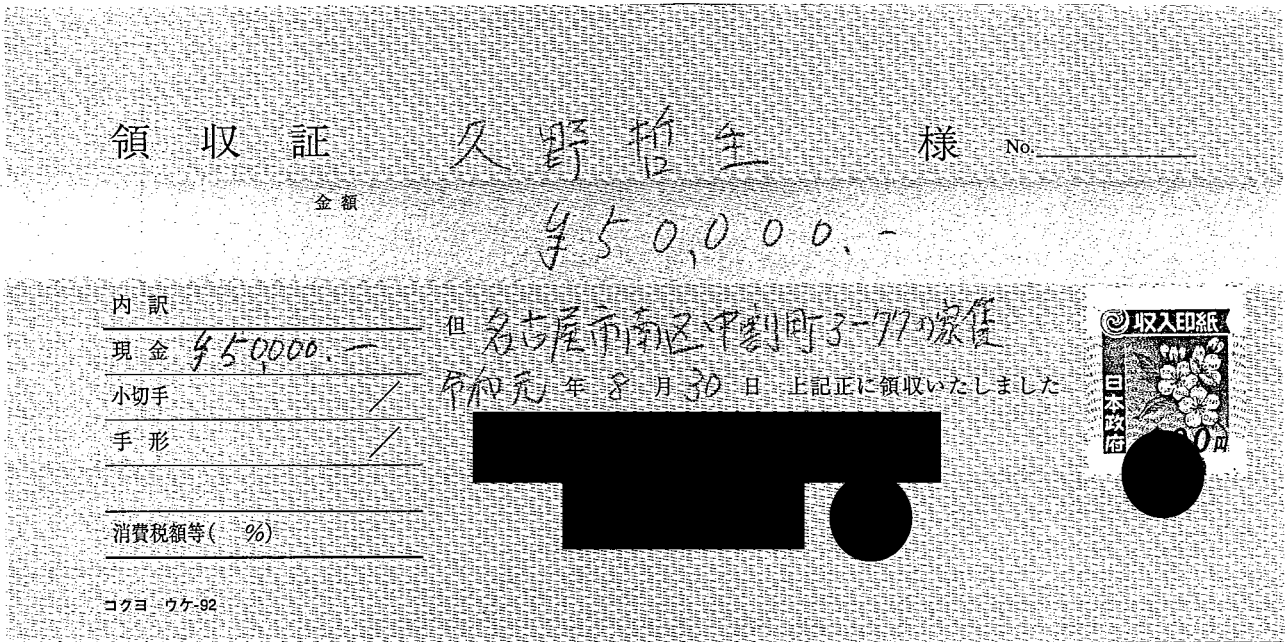 領収証 久野哲生 様 No.
金額
¥50,000.-
内訳
現金 ¥50,000.-
小切手 /
手形 /
消費税額等( %)
但 名古屋市南区中割町3-77の家賃
令和元年8月30日 上記正に領収いたしました
収入印紙
日本政府
00円
コクヨ ウケ-92